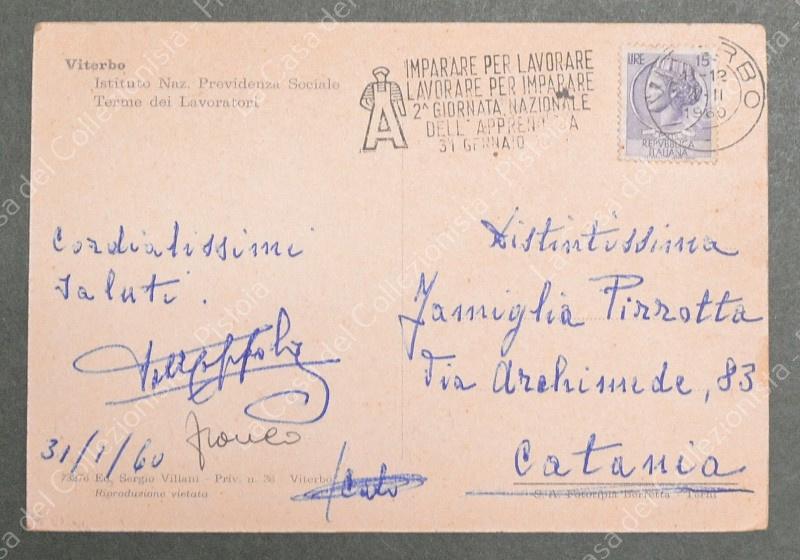 Viterbo
Istituto Naz. Previdenza Sociale
Terme dei Lavoratori
A
IMPARARE PER LAVORARE
LAVORARE PER IMPARARE
2ª GIORNATA NAZIONALE
DELL'APPREN A
31 GENNAIO
LIRE
REPVBBLICA
ITALIANA
RBO
15-
-12
-II
1960
Cordialissimi
saluti.
franco
31/1/60
Distintissima
Famiglia Pizzotta
Via Archimede, 83
Catania
Ed. Sergio Villani - Priv. n. 36 Viterbo
Riproduzione vietata
S. A. Fototipia Berretta - Terni
Casa del Collezionista - Pistoia